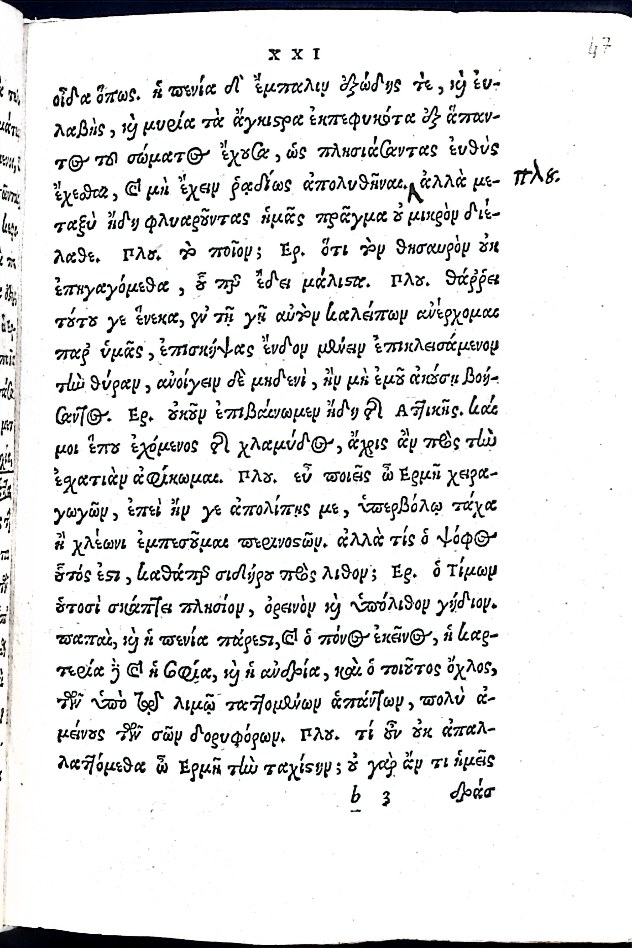 XXI
47
οἶδα ὅπως. ἡ πενία δ' ἔμπαλιν ἰξώδης τε, καὶ εὐ-
λαβὴς, καὶ μυρία τὰ ἄγκιστρα ἐκπεφυκότα ἐξ ἅπαν-
τος τοῦ σώματος ἔχουσα, ὡς πλησιάσαντας εὐθὺς
ἔχεσθαι, καὶ μὴ ἔχειν ῥᾳδίως ἀπολυθῆναι. ἀλλὰ με-
πλου.
ταξὺ ἤδη φλυαροῦντας ἡμᾶς πρᾶγμα οὐ μικρὸν διέ-
λαθε. Πλου. τὸ ποῖον; Ερ. ὅτι τὸν θησαυρὸν οὐκ
ἐπηγαγόμεθα, οὗπερ ἔδει μάλιστα. Πλου. θάῤῥει
τούτου γε ἕνεκα, ἐν τῇ γῇ αὐτὸν καλείπων ἀνέρχομαι
παρ' ὑμᾶς, ἐπισκήψας ἔνδον μένειν ἐπικλεισάμενον
τὴν θύραν, ἀνοίγειν δὲ μηδενὶ, ἢν μὴ ἐμοῦ ἀκούσῃ βοή-
σαντος. Ερ. οὐκοῦν ἐπιβαίνωμεν ἤδη τῆς Ἀττικῆς. καί
μοι ἕπου ἐχόμενος τῆς χλαμύδος, ἄχρις ἂν πρὸς τὴν
ἐσχατιὰν ἀφίκωμαι. Πλου. εὖ ποιεῖς ὦ Ερμῆ χειρα-
γωγῶν, ἐπεὶ ἤν γε ἀπολίπῃς με, ὑπερβόλῳ τάχα
ἢ κλέωνι ἐμπεσοῦμαι περινοστῶν. ἀλλὰ τίς ὁ ψόφος
οὗτός ἐστι, καθάπερ σιδήρου πρὸς λίθον; Ερ. ὁ Τίμων
οὑτοσὶ σκάπτει πλησίον, ὀρεινὸν καὶ ὑπόλιθον γήδιον.
παπαὶ, καὶ ἡ πενία πάρεστι, καὶ ὁ πόνος ἐκεῖνος, ἡ καρ-
τερία τε καὶ ἡ σοφία, καὶ ἡ ἀνδρία, καὶ ὁ τοιοῦτος ὄχλος,
τῶν ὑπὸ τῷ λιμῷ ταττομένων ἁπάντων, πολὺ ἀ-
μείνους τῶν σῶν δορυφόρων. Πλου. τί οὖν οὐκ ἀπαλ-
λαττόμεθα ὦ Ερμῆ τὴν ταχίστην; οὐ γὰρ ἄν τι ἡμεῖς
b 3 δράσ